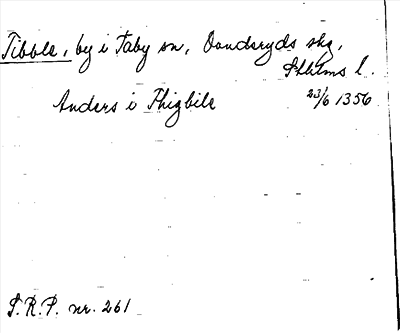 Tibble, by i Täby sn, Danderyds skg,
Sthlms l.
Anders i Thigbile 23/6 1356
S.R.P. nr. 261